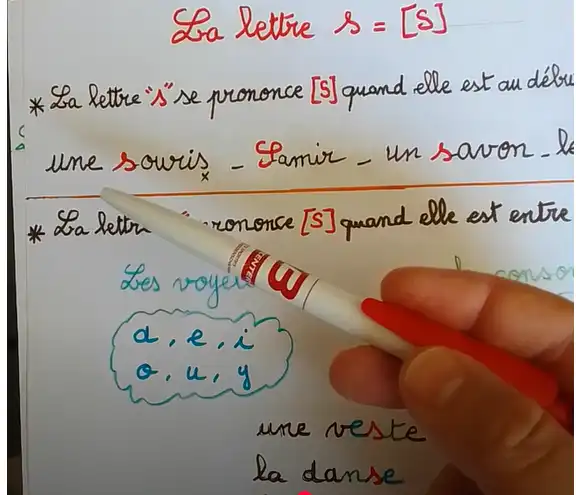 La lettre s = [S]
* La lettre "s" se prononce [S] quand elle est au débu
une souris - Samir - un savon - le
* La lettre prononce [S] quand elle est entre
Les
a, e, i
o, u, y
une veste
la danse